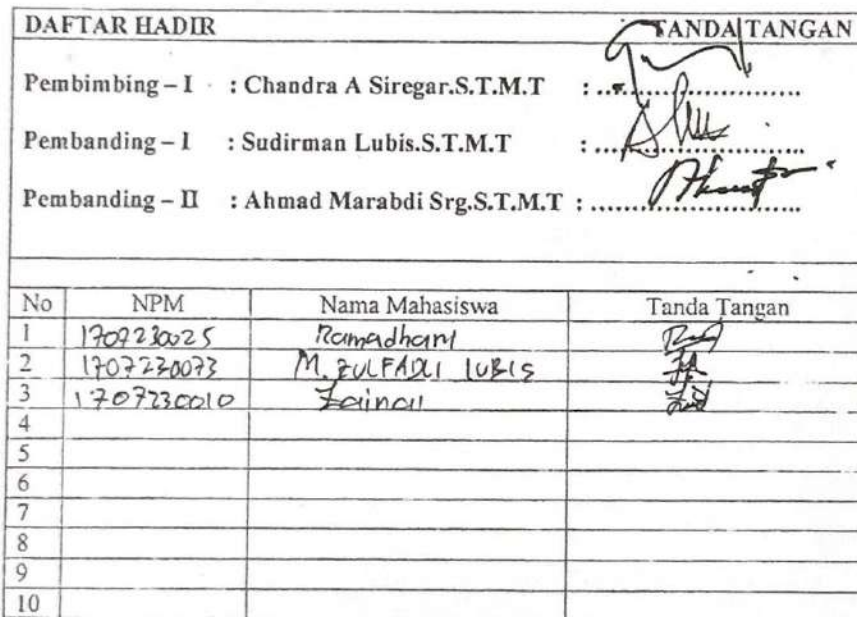 DAFTAR HADIR TANDA TANGAN
Pembimbing – I : Chandra A Siregar.S.T.M.T : ....................
Pembanding – I : Sudirman Lubis.S.T.M.T : ....................
Pembanding – II : Ahmad Marabdi Srg.S.T.M.T : ....................
No NPM Nama Mahasiswa Tanda Tangan
1 1707230025 Ramadhani
2 1707230073 M. ZULFADLI LUBIS
3 1707230010 Zainal
4
5
6
7
8
9
10